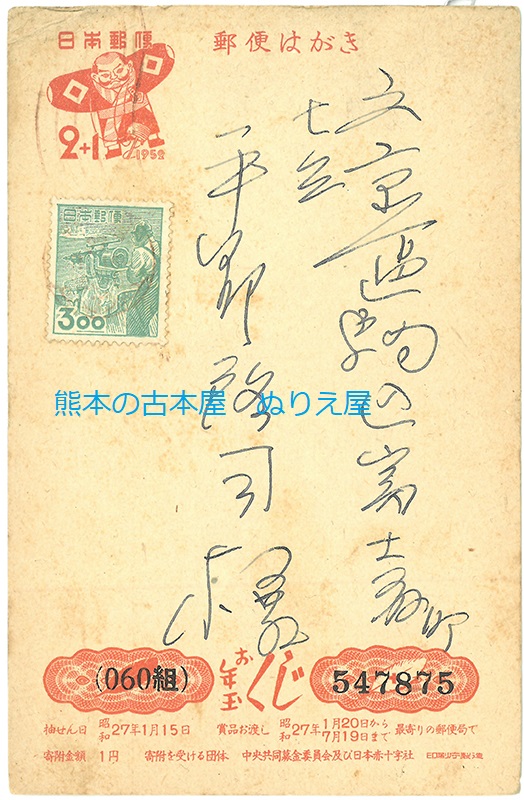 日本郵便
郵便はがき
2+1
1952
日本郵便
3.00
文京区駒込富士前町
七三
平野
司様
熊本の古本屋　ぬりえ屋
(060組)
お年玉くじ
547875
抽せん日 昭和27年1月15日 賞品お渡し 昭和27年1月20日から7月19日まで 最寄りの郵便局で
寄附金額 1円 寄附を受ける団体 中央共同募金委員会及び日本赤十字社 印刷庁製造